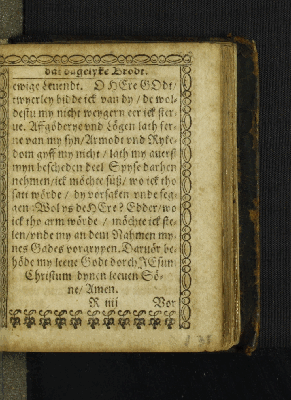 dat dagelyke Brodt.
ewige Levendt. O HEre GOdt/
twyerley bidde ick van dy / de wol-
destu my nicht weygern eer ick ster-
ve. Affgöderye vnd Lögen lath fer-
ne van my syn/ Armodt vnd Ryke-
dom giff my nicht / lath my averst
myn bescheden deel Spyse darhen
nehmen/ ick möchte süß/ wo ick tho
satt wörde / dy vorsaken vnde seg-
gen: Wol ys de HEre? Edder wo
ick tho arm wörde / möchte ick ste-
len/ vnde my an dem Nahmen my-
nes Gades vorgrypen. Darvör be-
höde my leeve Godt dorch JEsum
Christum dynen leeven Sö-
ne/ Amen.
R iiij Vor